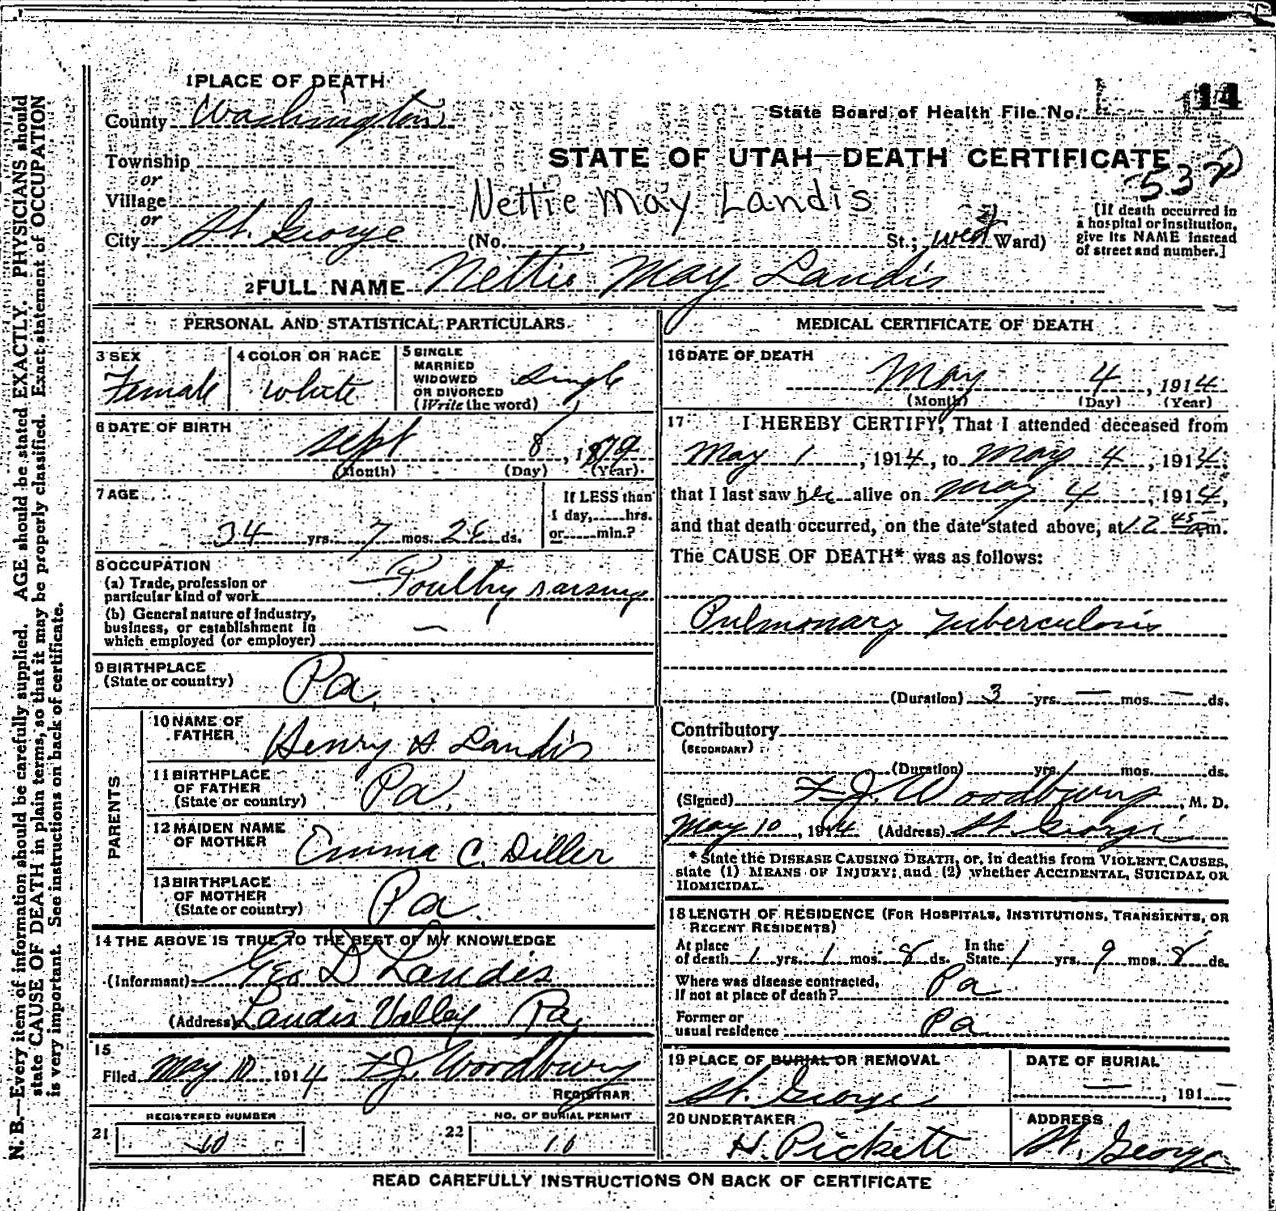 1 PLACE OF DEATH
County Washington
State Board of Health File No. 14
Township
STATE OF UTAH—DEATH CERTIFICATE
or
532
Village
Nettie May Landis
or
City St. George (No. , St.; West Ward)
[If death occurred in a hospital or institution, give its NAME instead of street and number.]
2 FULL NAME Nettie May Landis
PERSONAL AND STATISTICAL PARTICULARS
3 SEX
Female
4 COLOR OR RACE
White
5 SINGLE
MARRIED
WIDOWED
OR DIVORCED
(Write the word)
Single
6 DATE OF BIRTH
Sept 8, 1879
(Month) (Day) (Year)
7 AGE
34 yrs. 7 mos. ds.
If LESS than
1 day,......hrs.
or......min.?
8 OCCUPATION
(a) Trade, profession or
particular kind of work Poultry raising
(b) General nature of industry,
business, or establishment in
which employed (or employer) —
9 BIRTHPLACE
(State or country) Pa.
PARENTS
10 NAME OF
FATHER Henry H Landis
11 BIRTHPLACE
OF FATHER
(State or country) Pa.
12 MAIDEN NAME
OF MOTHER Emma C. Diller
13 BIRTHPLACE
OF MOTHER
(State or country) Pa.
14 THE ABOVE IS TRUE TO THE BEST OF MY KNOWLEDGE
(Informant) Geo D Landis
(Address) Landis Valley Pa.
15
Filed May 10 1914 F.J. Woodbury
REGISTRAR
REGISTERED NUMBER
21 10
NO. OF BURIAL PERMIT
22 10
MEDICAL CERTIFICATE OF DEATH
16 DATE OF DEATH
May 4, 1914
(Month) (Day) (Year)
17 I HEREBY CERTIFY, That I attended deceased from
May 1, 1914, to May 4, 1914,
that I last saw her alive on May 4, 1914,
and that death occurred, on the date stated above, at 12 45 m.
The CAUSE OF DEATH* was as follows:
Pulmonary Tuberculosis
(Duration) 3 yrs. — mos. — ds.
Contributory
(SECONDARY)
(Duration) yrs. mos. ds.
(Signed) F.J. Woodbury, M. D.
May 10, 1914 (Address) St. George
* State the DISEASE CAUSING DEATH, or, in deaths from VIOLENT CAUSES,
state (1) MEANS OF INJURY; and (2) whether ACCIDENTAL, SUICIDAL OR
HOMICIDAL.
18 LENGTH OF RESIDENCE (FOR HOSPITALS, INSTITUTIONS, TRANSIENTS, OR
RECENT RESIDENTS)
At place
of death 1 yrs. 1 mos. 8 ds.
In the
State 1 yrs. 9 mos. 8 ds.
Where was disease contracted,
if not at place of death? Pa
Former or
usual residence Pa
19 PLACE OF BURIAL OR REMOVAL
St. George
DATE OF BURIAL
— , 191 —
20 UNDERTAKER
H. Pickett
ADDRESS
St. George
READ CAREFULLY INSTRUCTIONS ON BACK OF CERTIFICATE
N. B.—Every item of information should be carefully supplied. AGE should be stated EXACTLY. PHYSICIANS should
state CAUSE OF DEATH in plain terms, so that it may be properly classified. Exact statement of OCCUPATION
is very important. See instructions on back of certificate.